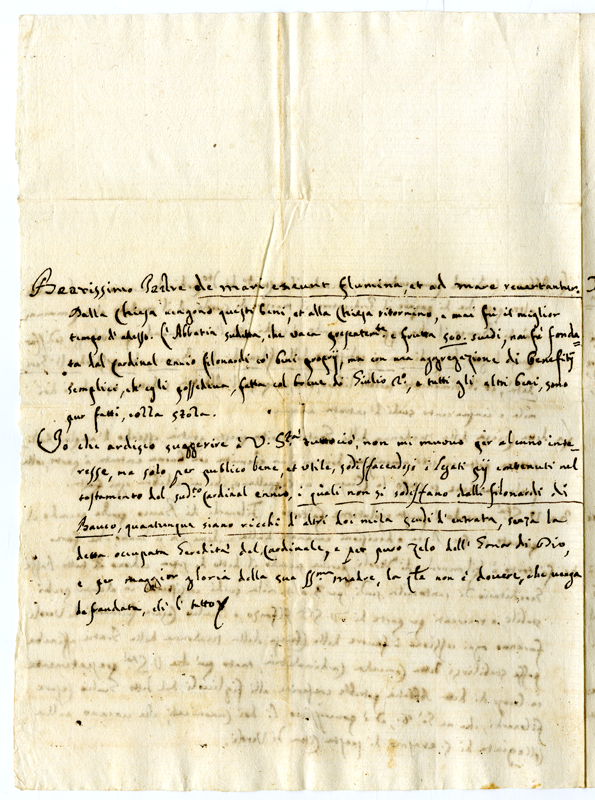 Beatissimo Padre de mari exeunt flumina, et ad mare revertantur.
Dalla Chiesa vengono questi beni, et alla Chiesa ritornino, e mai fù il miglior
tempo di adesso. L'Abbatia sudetta, che vaca presentem.te e frutta 500. scudi, non fù fonda=
ta dal Cardinal ennio filonardi co' beni proprij, ma con una aggregazione di benefitij
semplici, ch'egli possedeva, fatta col breve di Giulio 2.o, e tutti gli altri beni, sono
pur fatti, colla stola.
Io che ardisco suggerire à V. S.tà tuttociò, non mi muovo per alcuno inte=
resse, ma solo per publico bene, et utile, sodisfaccendosi i legati pij contenuti nel
testamento del sud.o Cardinal ennio, i quali non si sodisfano dalli filonardi di
Bauco, quantunque siano ricchi d'altri doi mila scudi d'entrata, senza la
detta occupata heredità del Cardinale, e per puro zelo dell'honor di Dio,
e per maggior gloria della sua ss.ma Madre, la q.le non è dovere, che venga
defraudata, ch'è l'tutto